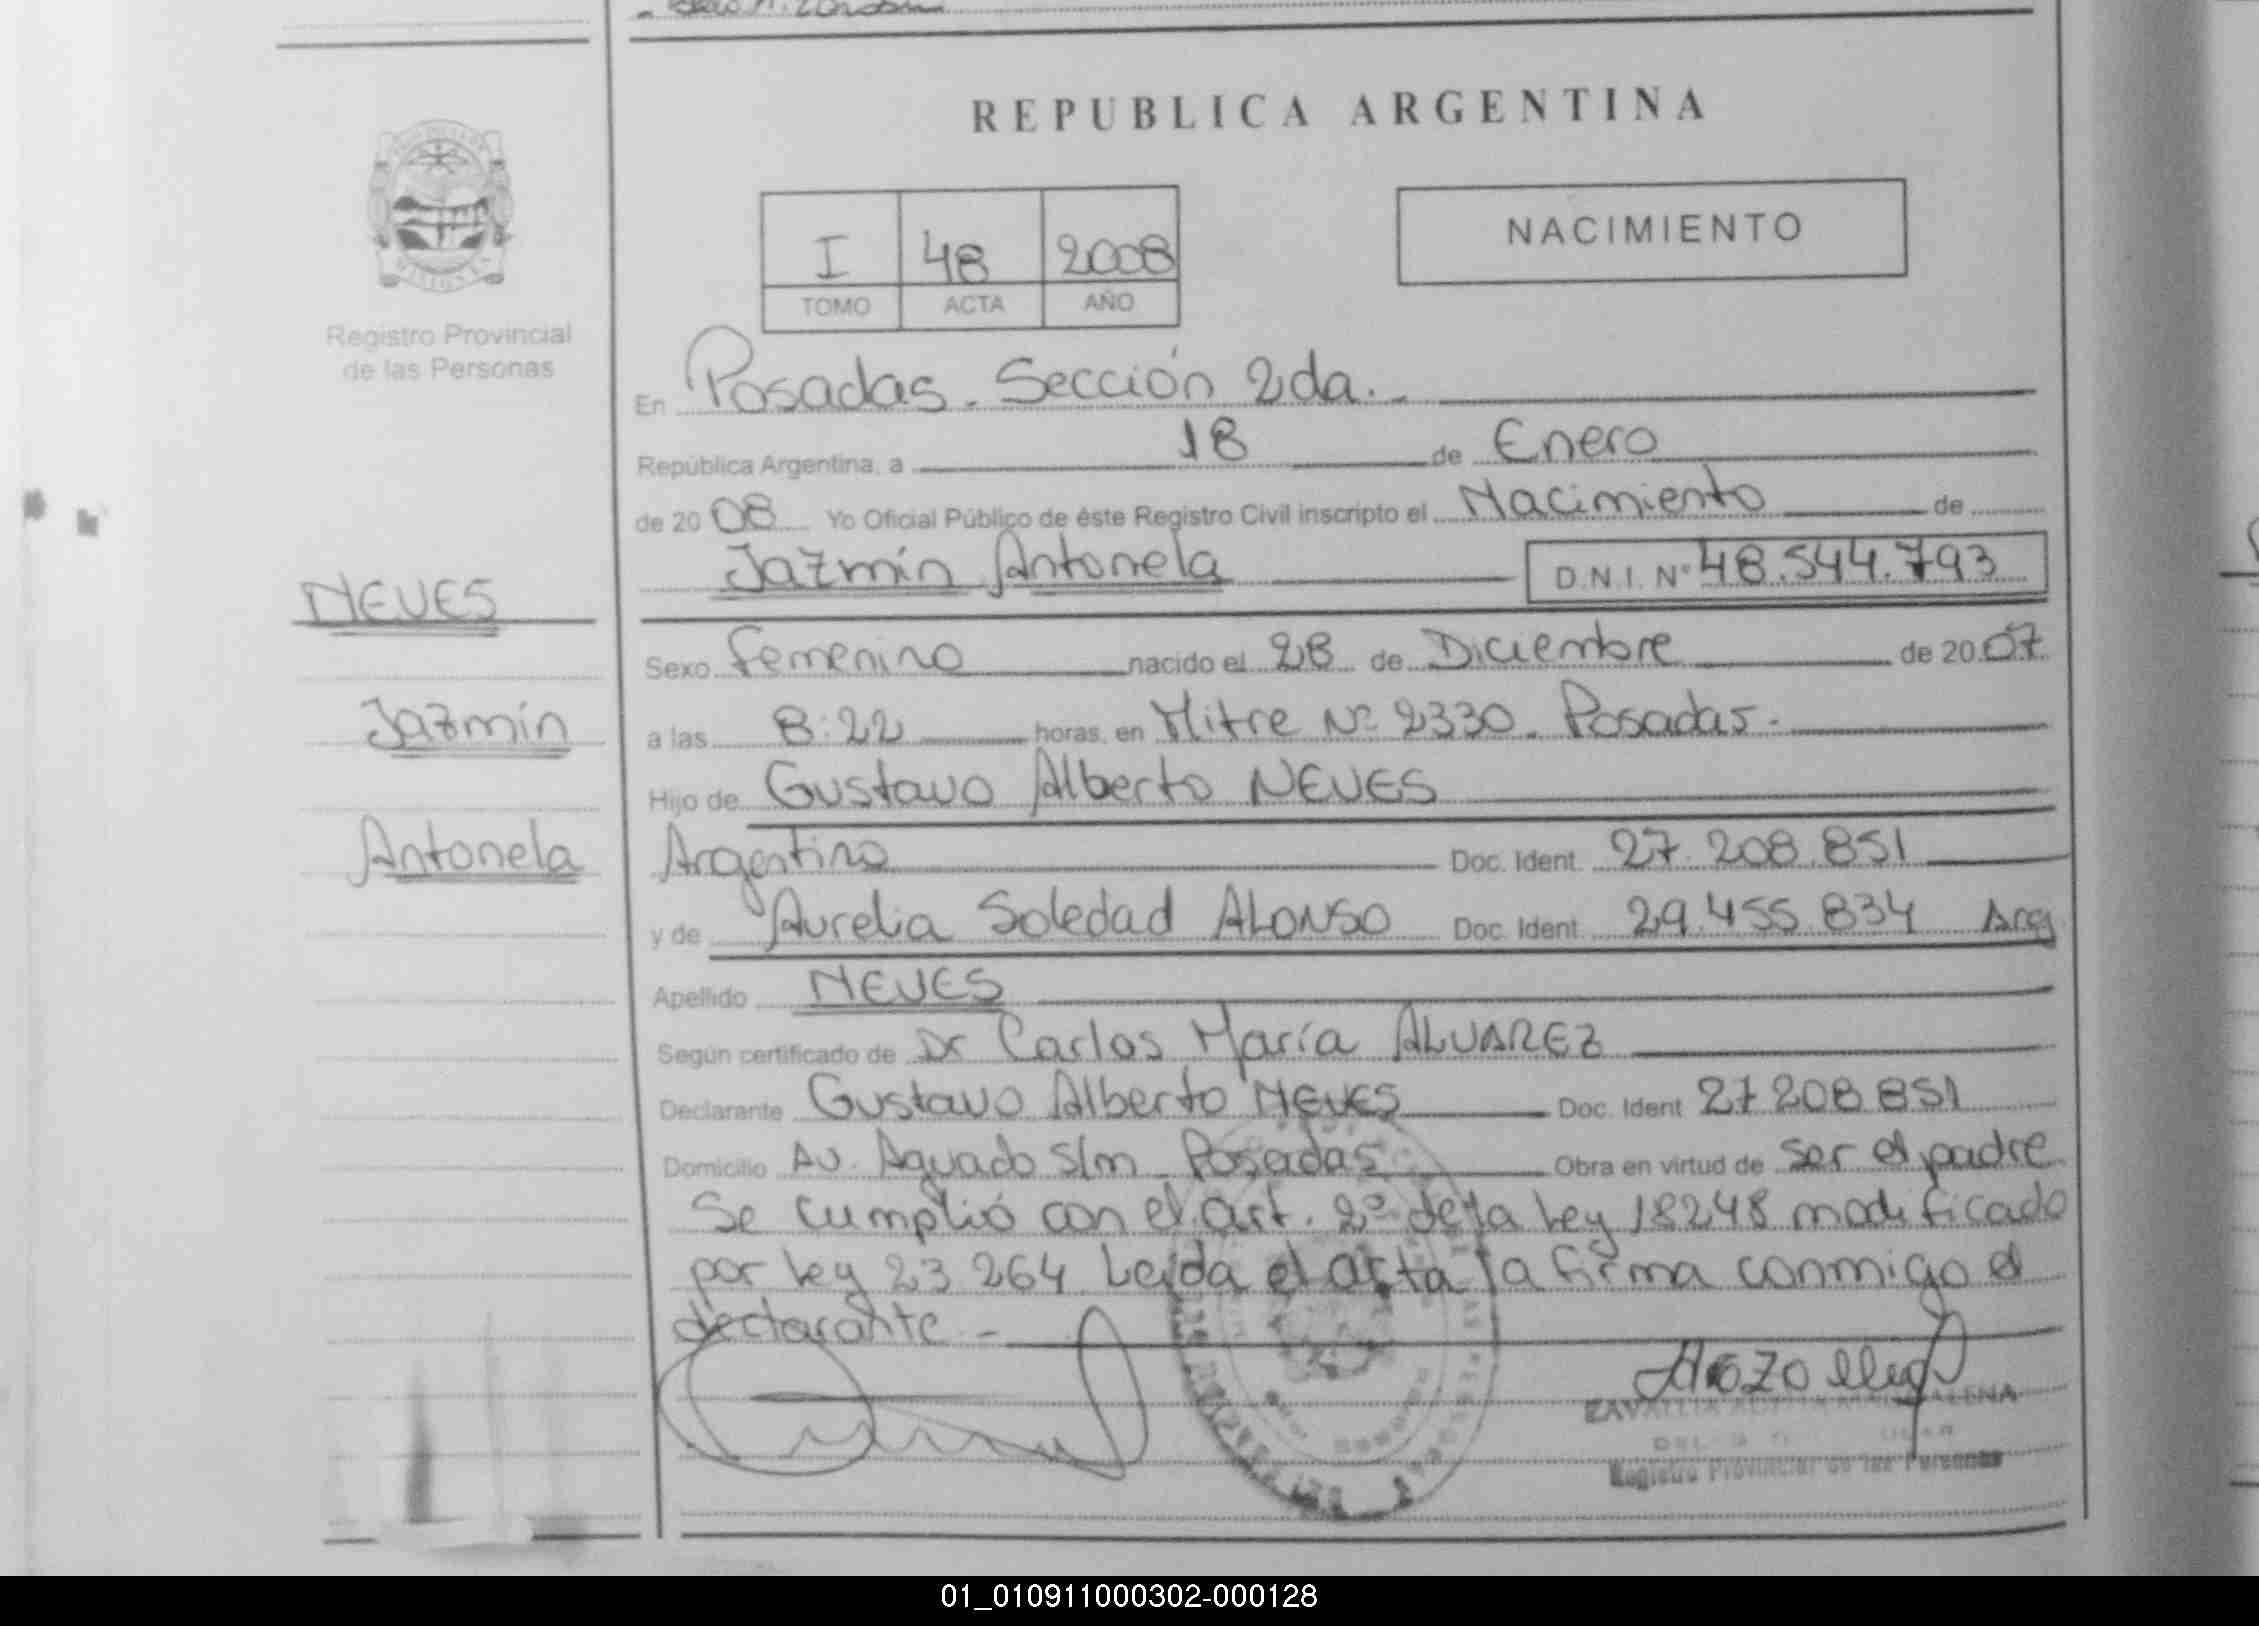 REPUBLICA ARGENTINA
NACIMIENTO
I 48 2008
TOMO ACTA AÑO
Registro Provincial
de las Personas
En Posadas. Sección 2da.
República Argentina, a 18 de Enero
de 2008 Yo Oficial Público de éste Registro Civil inscripto el Nacimiento de
Jazmín Antonela D.N.I. Nº 48.544.793
NEVES
Jazmín
Antonela
Sexo Femenino nacido el 28 de Diciembre de 2007
a las 8:22 horas, en Mitre Nº 2330. Posadas.
Hijo de Gustavo Alberto NEVES
Argentino Doc. Ident. 27.208.851
y de Aurelia Soledad ALONSO Doc. Ident. 29.455.834 Arg
Apellido NEVES
Según certificado de Dr Carlos María ALVAREZ
Declarante Gustavo Alberto NEVES Doc. Ident 27 208 851
Domicilio Av. Aguado S/n Posadas Obra en virtud de ser el padre
Se cumplió con el art. 2º de la Ley 18248 modificado
por ley 23 264 Leída el acta la firma conmigo el
declarante -
Registro Provincial de las Personas
01_010911000302-000128